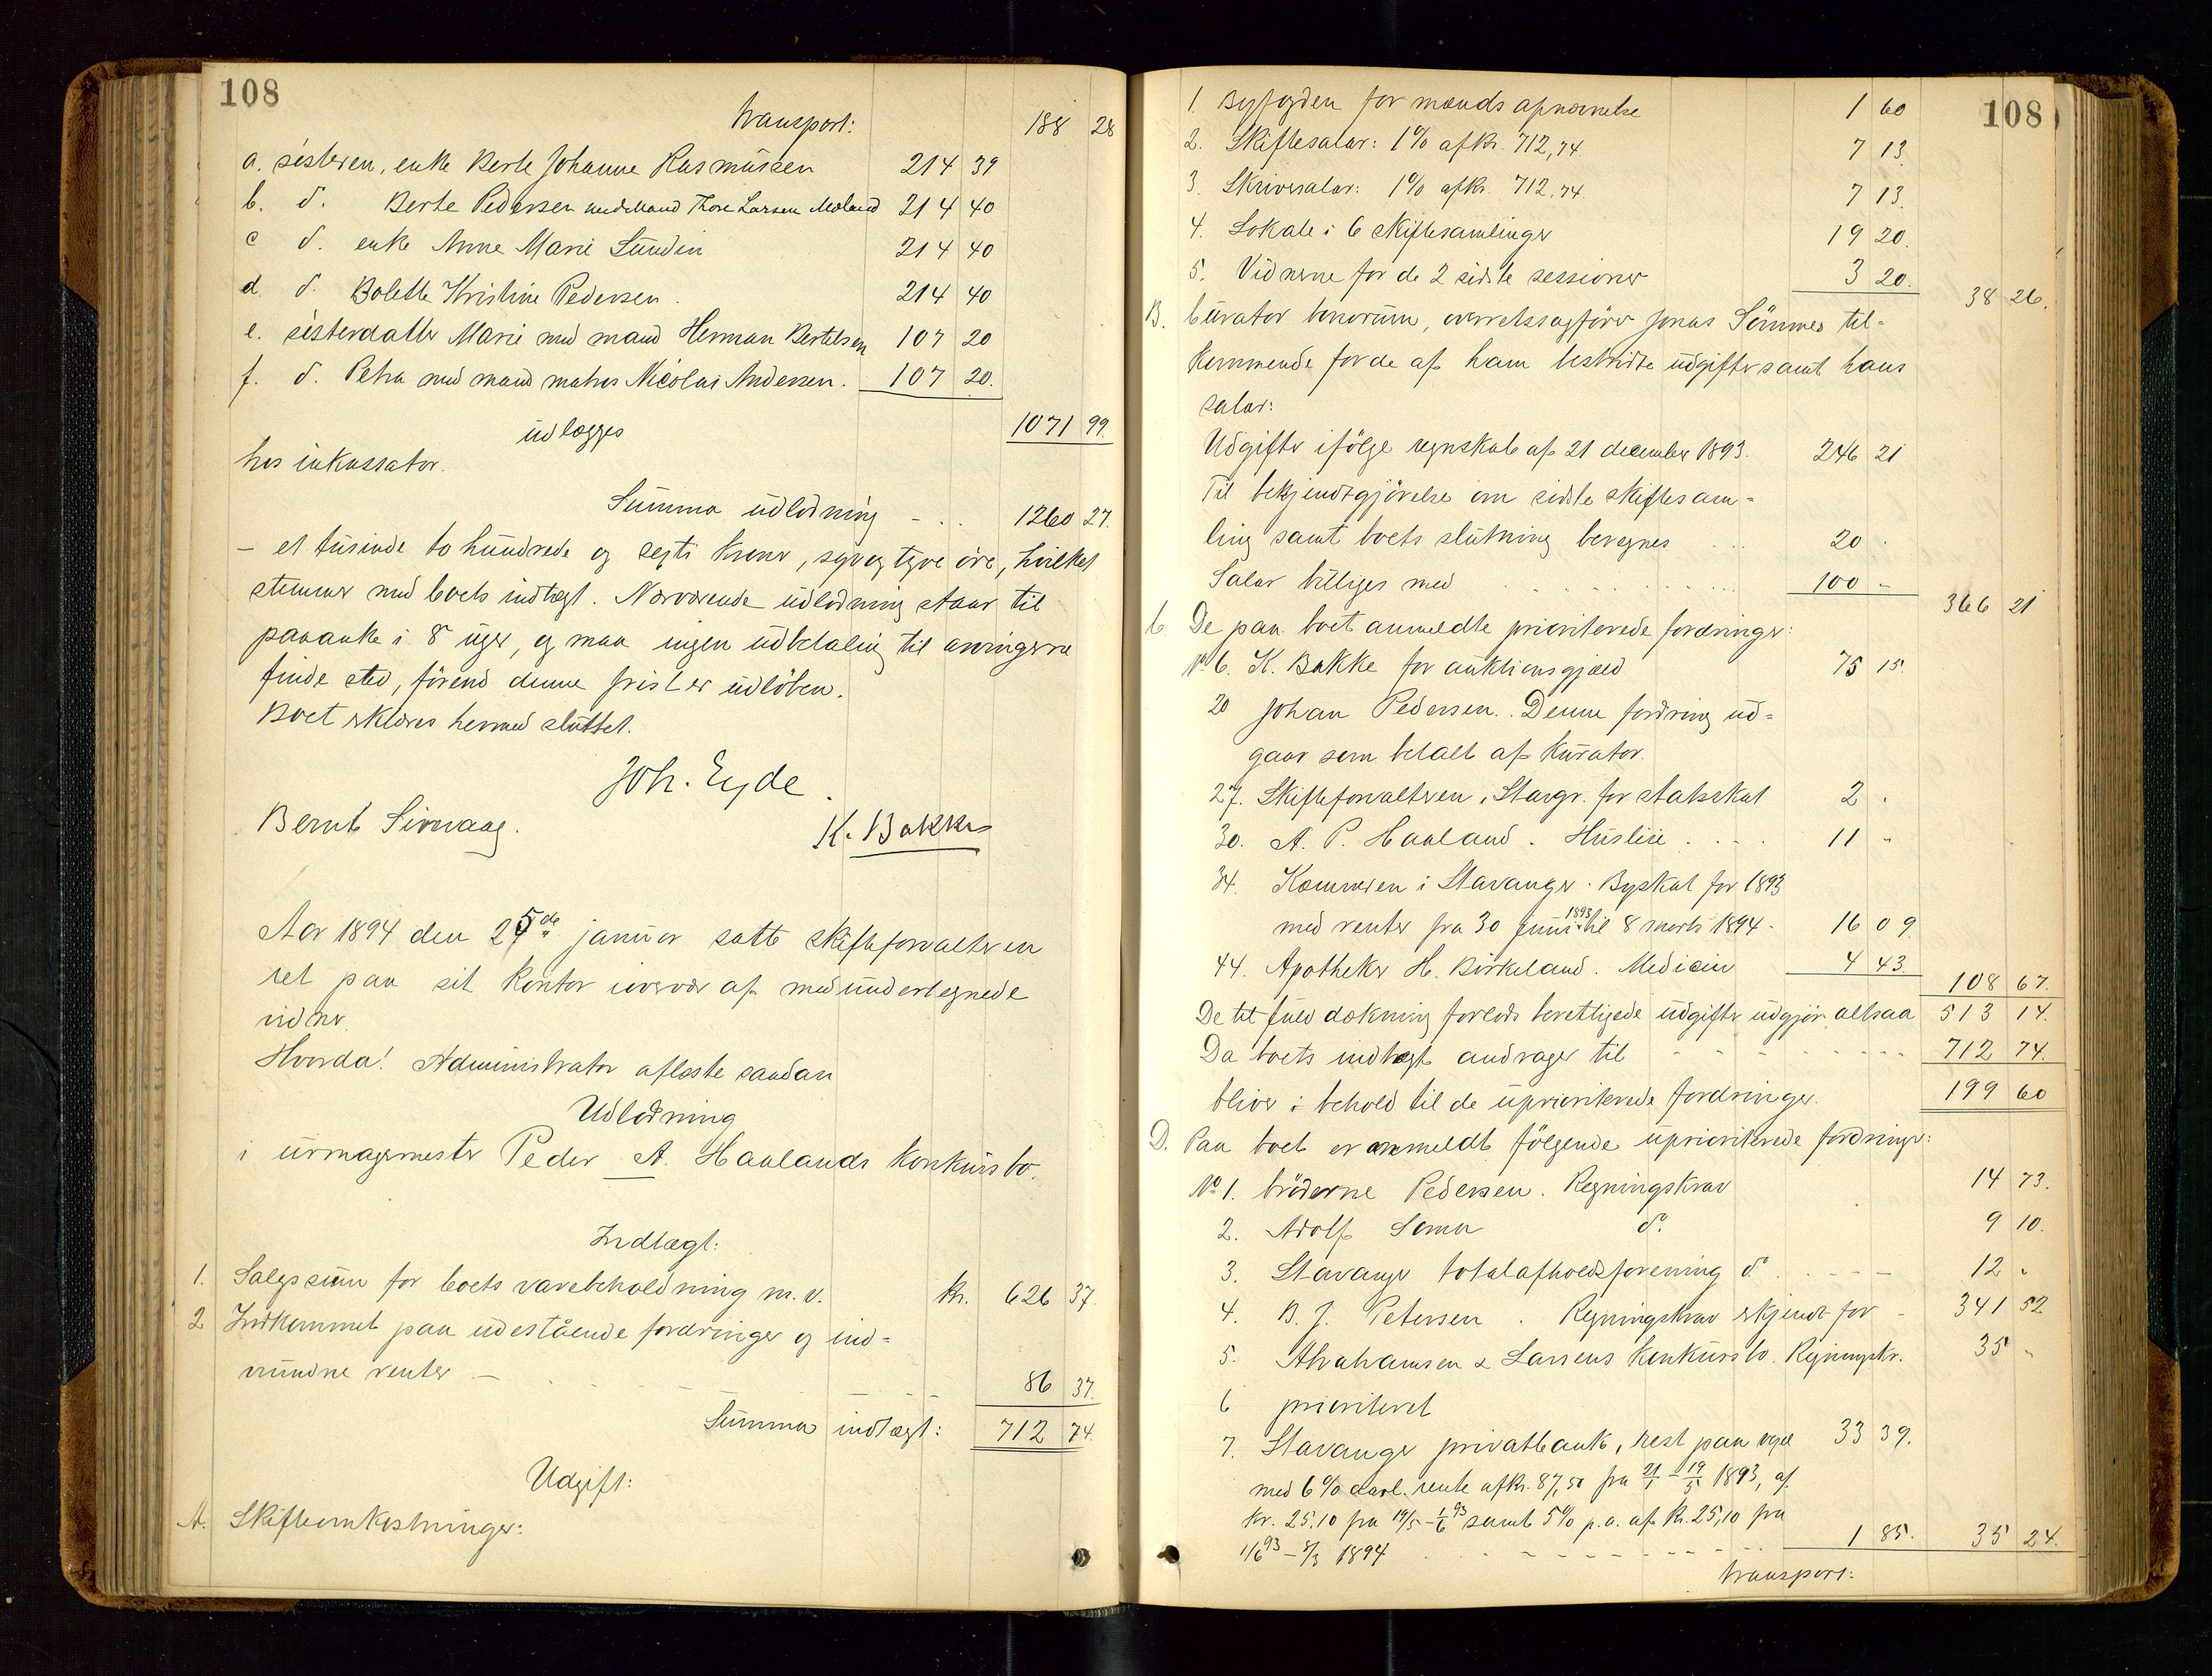 108
transport: 188 28
a. sisteren, enke Berte Johanne Rasmussen 214 39
b. do. Berte Pedersen med mand Thore Larsen Meland 214 40
c do. enke Anne Marie Sundin 214 40
d. do. Bolette Kristine Pedersen. 214 40
e. sisterdatter Marie med mand Herman Bertelsen 107 20
f. do. Petra med mand matros Nicolai Andersen. 107 20.
1071 99.
udlægges
hos inkassator.
Summa udlodning - . . 1260 27.
- et tusinde to hundrede og sexti kroner, syv og tyve øre, hvilket
stemmer med boets indtægt. Nærværende udlodning staar til
paaanke i 8 uger, og maa ingen udbetaling til arvingerne
finde sted, førend denne frist er udløben.
Boet erklæres hermed sluttet.
Joh. Eyde.
Bernt Sirevaag. K. Bakke
Aar 1894 den 25de januar satte skifteforvalteren
ret paa sit kontor i overvær af medundertegnede
vidner.
Hvorda! Administrator aflæste saadan
Udlodning
i urmagermester Peder A. Haalands konkursbo.
Indtægt:
1. Salgssum for boets varebeholdning m. v. kr. 626 37.
2 Indkommet paa udestående fordringer og ind-
vundne renter - 86 37.
Summa indtægt: 712 74.
Udgift:
A. Skifteomkostninger:
108
1. Byfogden for mænds opnævnelse 1 60
2. Skiftesalær: 1% af kr. 712,74. 7 13.
3. Skriversalær: 1% af kr. 712,74. 7 13.
4. Lokale i 6 skiftesamlinger 19 20.
5. Vidnerne for de 2 sidste sessioner 3 20.
38 26.
B. Curator bonorum, overretssagfører Jonas Sømmes til-
kommende for de af ham bestridte udgifter samt hans
salær:
Udgifter ifølge regnskab af 21 december 1893. 246 21
Til bekjendtgjørelse om sidste skiftesam-
ling samt boets slutning beregnes 20 .
Salær billiges med 100 -
366 21
C De paa boet anmeldte prioriterede fordringer:
No 6. K. Bakke for auktionsgjæld 75 15.
20 Johan Pedersen. Denne fordring ud-
gaar som betalt af kurator.
27. Skifteforvalteren i Stavgr. for statsskat 2 .
30. A. P. Haaland. Husleie 11 -
34. Kæmneren i Stavanger. Byskat for 1893
med renter fra 30 juni 1893 til 8 marts 1894. 16 09
44. Apotheker H. Birkeland. Medicin 4 43.
108 67.
De til fuld dækning forlods berettigede udgifter udgjør altsaa 513 14.
Da boets indtægt andrager til 712 74.
bliver i behold til de uprioriterede fordringer. 199 60
D. Paa boet er anmeldt følgende uprioriterede fordringer:
No 1. brødrene Pedersen. Regningskrav 14 73.
2. Adolf Soma do. 9 10.
3. Stavanger totalafholdsforening do 12 -
4. B. J. Petersen. Regningskrav erkjendt for - 341 52
5. Abrahamsen & Larsens konkursbo. Regningskr. 35 -
6 prioriteret
7. Stavanger privatbank, rest paa vexel 33 39.
med 6% aarl. rente af kr. 87,50 fra 21/1 - 19/5 1893, af
kr. 25,10 fra 19/5 - 1/6 93 samt 5% p. a. af kr. 25,10 fra
1/6 93 - 8/3 1894 1 85. 35 24.
transport: